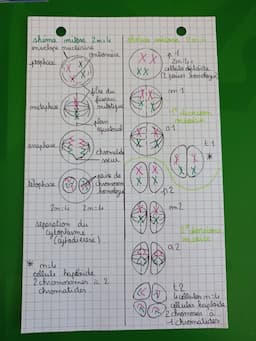 schéma mitose 2n=4
enveloppe nucléaire
centromère
prophase
fibre du
fuseau
mitotique
métaphase
plan
équatorial
anaphase
télophase
paire de
chromosomes
homologues
2n=4 2n=4
séparation du
cytoplasme
(cytodiérèse)
* n=4
cellule haploïde
2 chromosomes à 2
chromatides
schéma méiose 2n=4
p.1
2n=4
cellule diploïde
(2 paires homologues)
m1
1e division
méiose
a1
t1
p2
m2
2e division
méiose
a2
t2
4 cellules n=4
cellules haploïdes
2 chromosomes à
1 chromatides